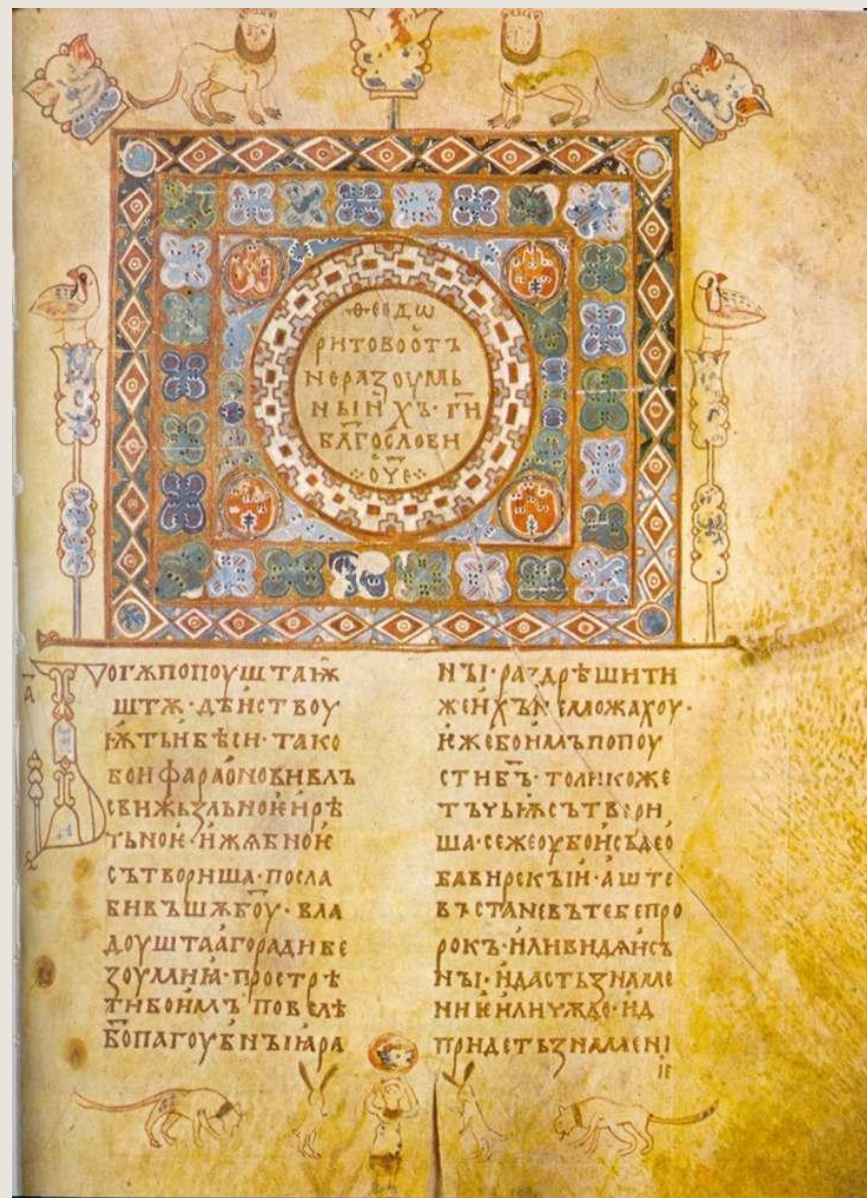 ѲЕОДѠ
РИТОВООТЪ
НЕРАЗОУМЬ
НЫИХЪ· ГН҃
БЛ҃ГОСЛОВИ
ОЧ҃Е
А҃
БОГѪПОПОУШТАѬ
ШТѪ· ДѢИСТВОУ
ѬТЬИБѢСИ· ТАКО
БОИФАРАОНОВИВЛЪ
СВИЖЬЗЛЬНОѤИРѢ
ТЬНОѤ· ИЖѦБНОѤ
СЪТВОРИША· ПОСЛА
БИВЪШѪБОУ҃· ВЛА
ДОУШТААГОРАДИБЕ
ЗОУМИꙖ· ПРОСТРѢ
ТИБОИМЪ ПОВЕЛѢ
Б҃ОПАГОУБИНЪІꙖРА
НЪІ· РАЗДРѢШИТИ
ЖЕИХЪНЕМОЖАХОУ·
ѤЖЕБОИМЪПОПОУ
СТИБ҃Ъ· ТОЛИКОЖЕ
ТЪЧЬѬСЪТВОРИ
ША· СЕЖЕОУБОИСЪДЕО
БАВИРЕКЪІИ· АШТЕ
ВЪСТАНЕВЪТЕБЕПРО
РОКЪ· ИЛИВИДѦИСЪ
НЪІ· ИДАСТЬЗНАМЕ
НИѤИЛИЧЮДО· ИД
ПРИДЕТЬЗНАМЕНІ
ІЕ